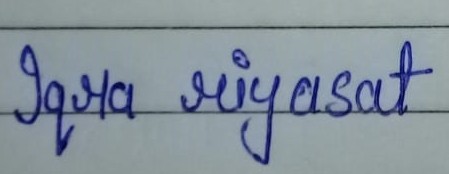 Iqra riyasat